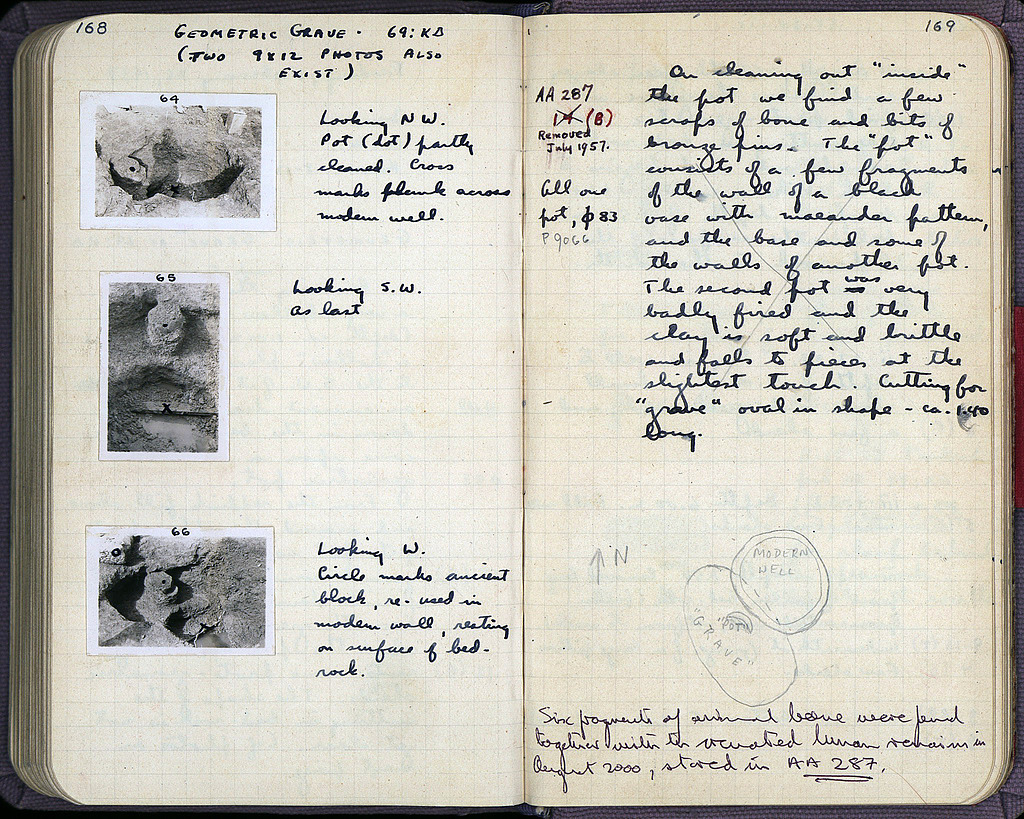 168
GEOMETRIC GRAVE - 69:KΔ
(TWO 9X12 PHOTOS ALSO
EXIST)
64
Looking NW.
Pot (dot) partly
cleaned. Cross
marks plank across
modern well.
65
Looking S.W.
as last
66
Looking W.
Circle marks ancient
block, re-used in
modern wall, resting
on surface of bed-
rock.
169
AA 287
(B)
Removed
July 1957.
All one
pot, φ 83
P9066
On cleaning out "inside"
the pot we find a few
scraps of bone and bits of
bronze pins. The "pot"
consists of a few fragments
of the wall of a black
vase with maeander pattern,
and the base and some of
the walls of another pot.
The second pot was very
badly fired and the
clay is soft and brittle
and falls to pieces at the
slightest touch. Cutting for
"grave" oval in shape - ca. 1.40
long.
N
MODERN
WELL
"POT"
"GRAVE"
Six fragments of animal bone were found
together with the cremated human remains in
August 2000, stored in AA 287.